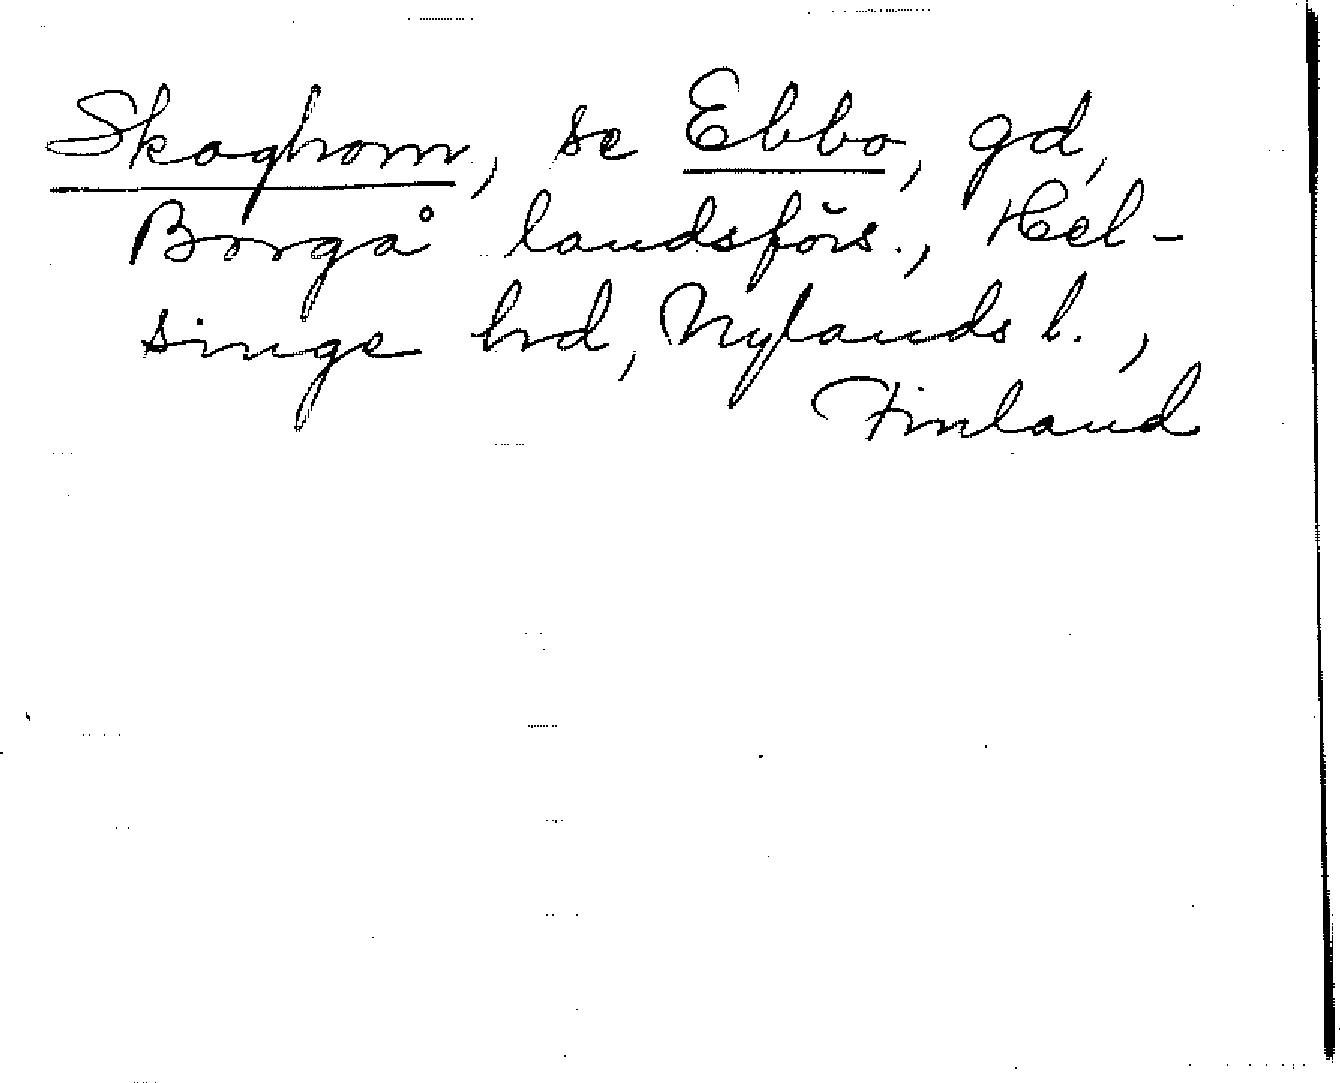 Skoghom, se Ebbo, gd,
Borgå landsförs., Hel-
singe hrd, Nylands l.,
Finland